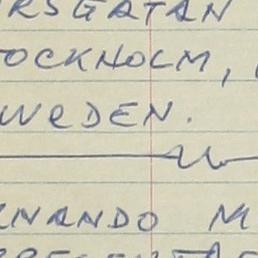 RSGATAN
TOCKHOLM,
WEDEN.
NANDO M